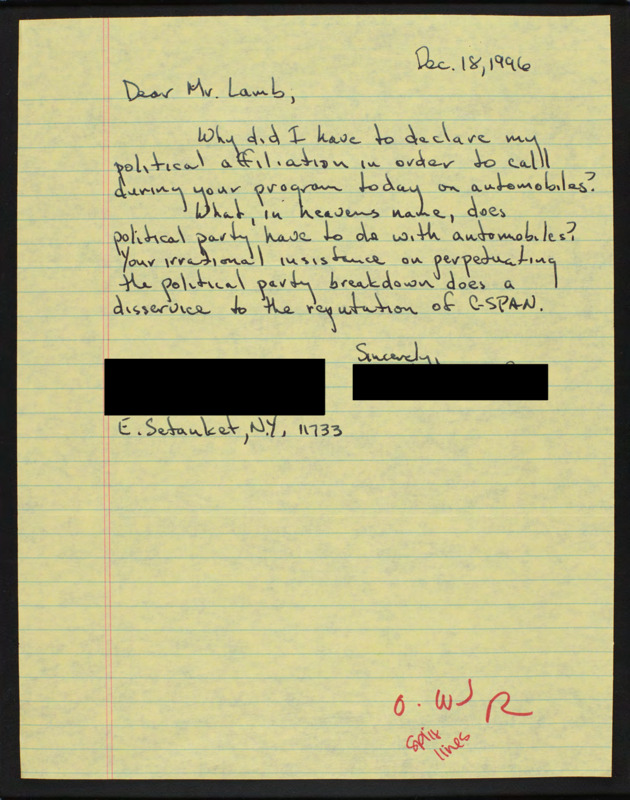 Dec. 18, 1996
Dear Mr. Lamb,
Why did I have to declare my
political affiliation in order to calll
during your program today on automobiles?
What, in heavens name, does
political party have to do with automobiles?
Your irrational insistance on perpetuating
the political party breakdown does a
disservice to the reputation of C-SPAN.
Sincerely,
E. Setauket, N.Y. 11733
split
lines